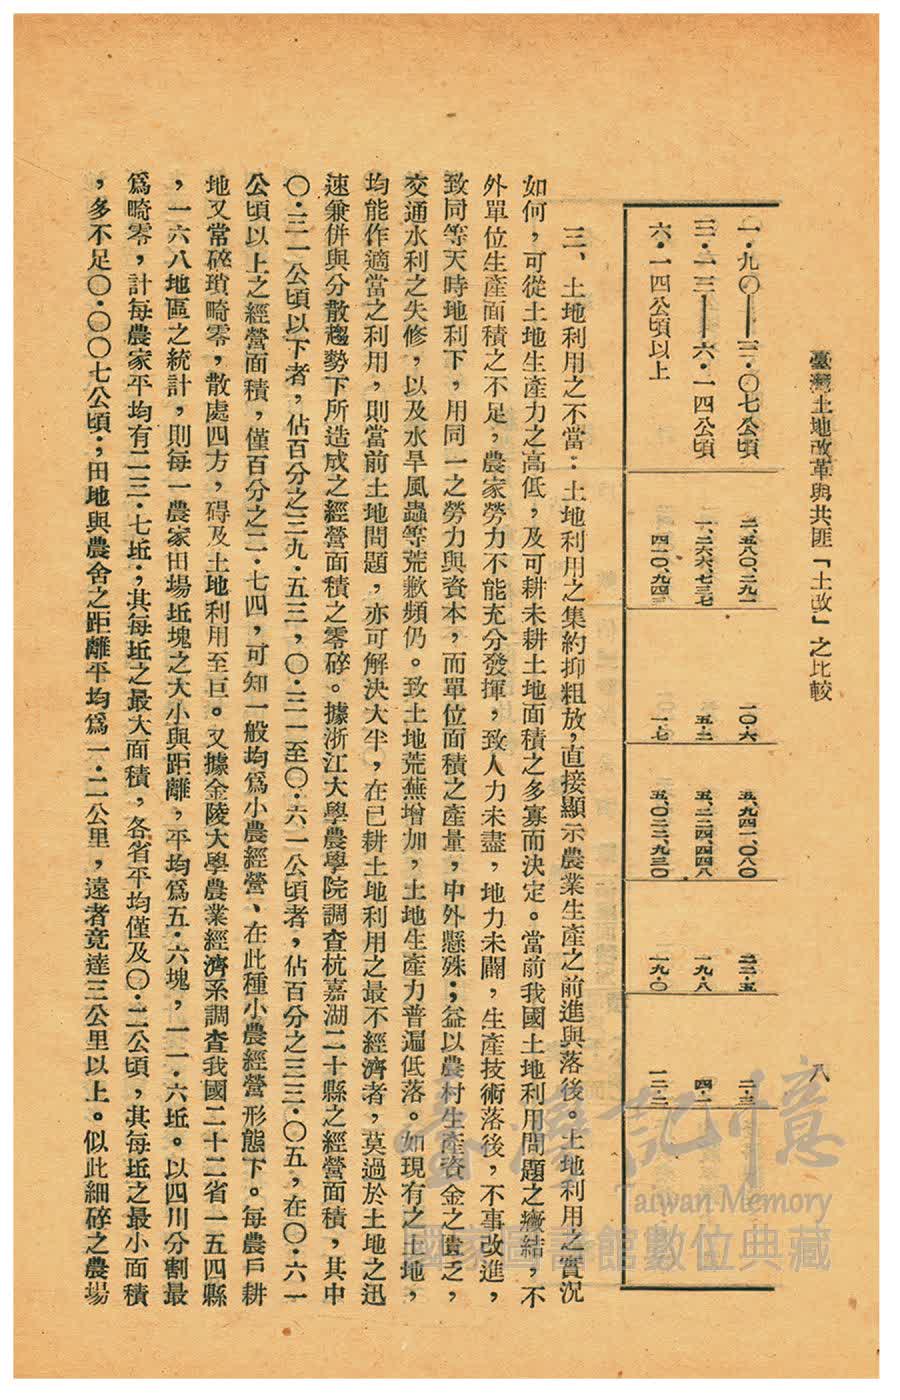 臺灣土地改革與共匪「土改」之比較
八
一・九〇——三・〇七公頃 二、五八〇、二九一 一〇・六 五、九四一、〇八〇 二二・五 二・三
三・一三——六・一四公頃 一、二六六、七三七 五・二 五、二二四、四四八 一九・八 四・一
六・一四公頃以上 四一〇、九四三 一・七 五、〇二二、九三〇 一九・〇 一二・二
三、土地利用之不當：土地利用之集約抑粗放，直接顯示農業生產之前進與落後。土地利用之實況
如何，可從土地生產力之高低，及可耕未耕土地面積之多寡而決定。當前我國土地利用問題之癥結，不
外單位生產面積之不足，農家勞力不能充分發揮，致人力未盡，地力未闢，生產技術落後，不事改進，
致同等天時地利下，用同一之勞力與資本，而單位面積之產量，中外懸殊；益以農村生產資金之匱乏，
交通水利之失修，以及水旱風蟲等荒歉頻仍。致土地荒蕪增加，土地生產力普遍低落。如現有之土地，
均能作適當之利用，則當前土地問題，亦可解決大半，在已耕土地利用之最不經濟者，莫過於土地之迅
速兼併與分散趨勢下所造成之經營面積之零碎。據浙江大學農學院調查杭嘉湖二十縣之經營面積，其中
〇・三一公頃以下者，佔百分之三九・五三，〇・三一至〇・六一公頃者，佔百分之三三・〇五，在〇・六一
公頃以上之經營面積，僅百分之二・七四，可知一般均爲小農經營、在此種小農經營形態下。每農戶耕
地又常碎瑣畸零，散處四方，碍及土地利用至巨。又據金陵大學農業經濟系調查我國二十二省一五四縣
，一六八地區之統計，則每一農家田場坵塊之大小與距離，平均爲五・六塊，一一・六坵。以四川分割最
爲畸零，計每農家平均有二三・七坵；其每坵之最大面積，各省平均僅及〇・二公頃，其每坵之最小面積
，多不足〇・〇〇七公頃；田地與農舍之距離平均爲一・二公里，遠者竟達三公里以上。似此細碎之農場
臺灣記憶
Taiwan Memory
國家圖書館數位典藏